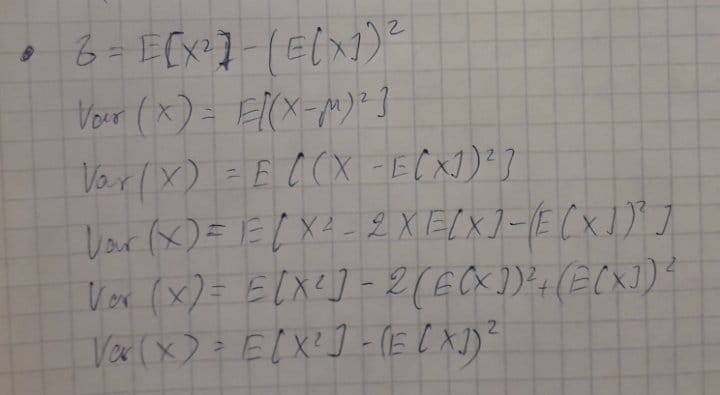 • б = E[X²] - (E[X])²
Var (X) = E[(X-μ)²]
Var (X) = E[(X - E[X])²]
Var (X) = E[X² - 2XE[X]-(E[X])²]
Var (X) = E[X²] - 2(E[X])²+(E[X])²
Var (X) = E[X²] - (E[X])²